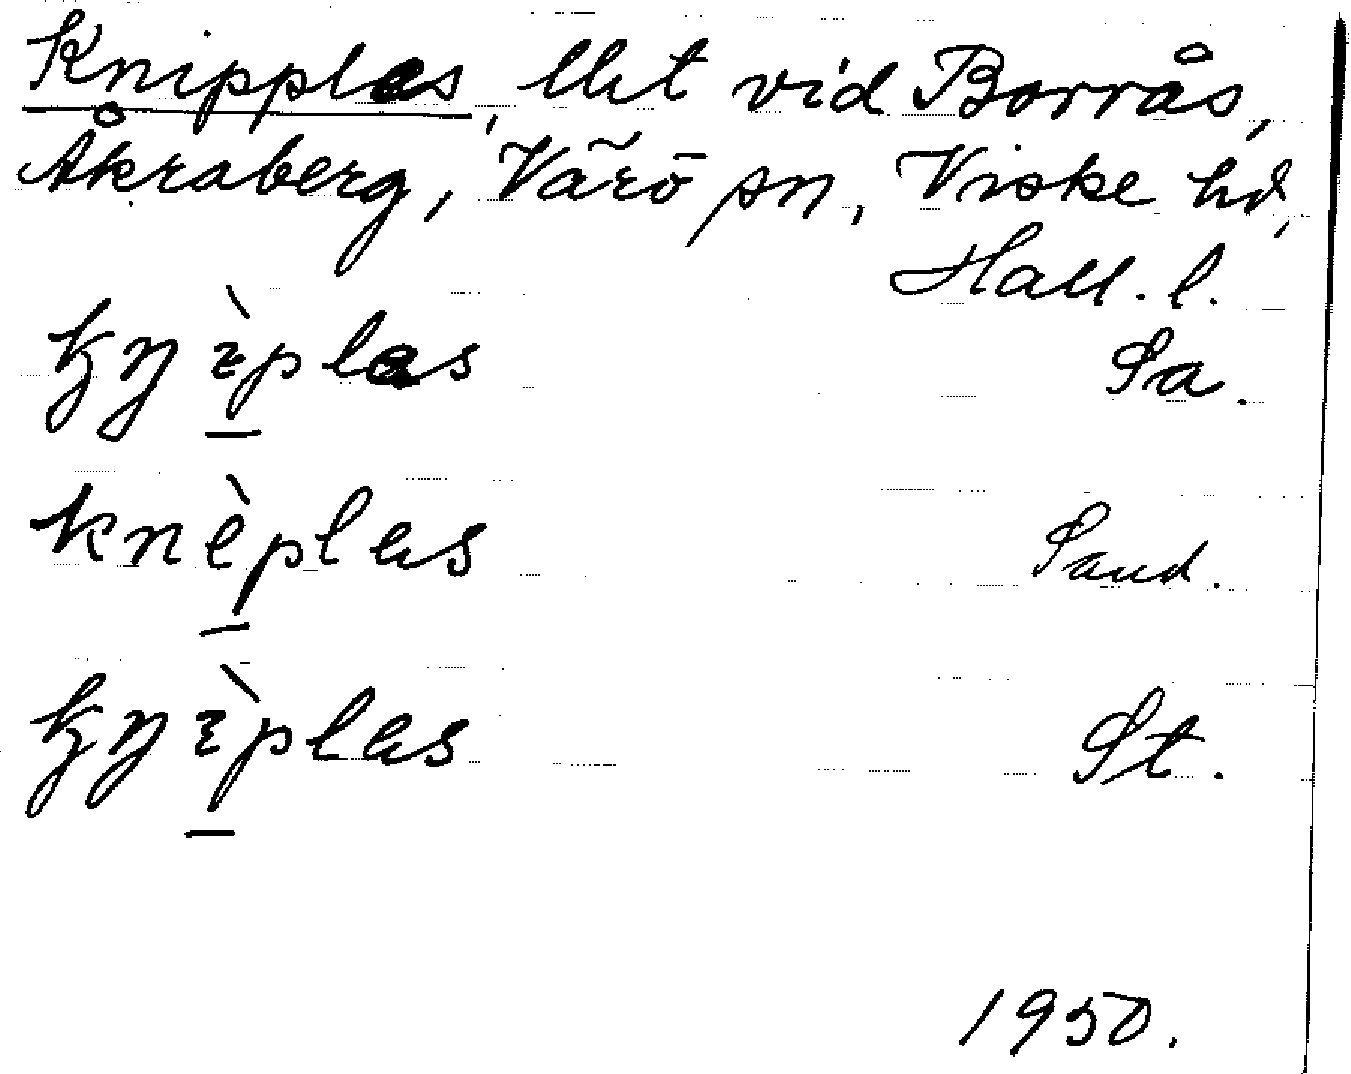 Knipplas, llet vid Borrås,
Åkraberg, Värö sn, Viske hd,
Hall. l.
Sa.
knèplas Sand.
St.
1950.